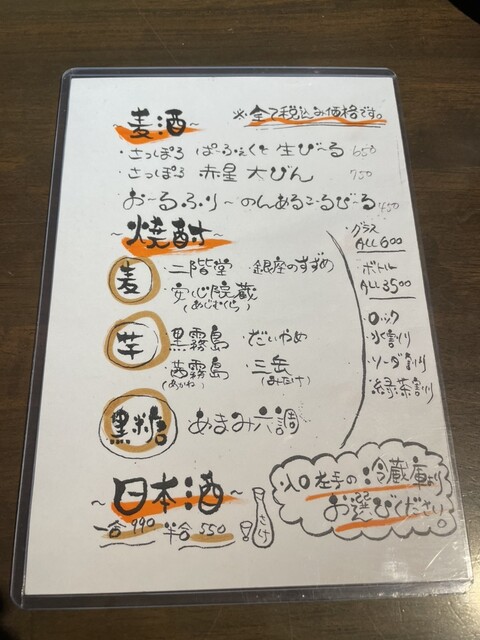 麦酒~
※全て税込み価格です。
・さっぽろ ぱーふぇくと 生びーる 650
・さっぽろ 赤星 大びん 750
おーるふりー のんあるこーるびーる 450
~焼酎~
・グラス
ALL 600
・ボトル
ALL 3500
・ロック
・水割り
・ソーダ割り
・緑茶割り
麦
・二階堂 ・銀座のすずめ
・安心院蔵
(あじむくら)
芋
・黒霧島 ・だいやめ
・茜霧島 ・三岳
(あかね) (みたけ)
黒糖
あまみ六調
~日本酒~
一合 990 半合 550
さけ
入口左手の冷蔵庫より
お選びください。